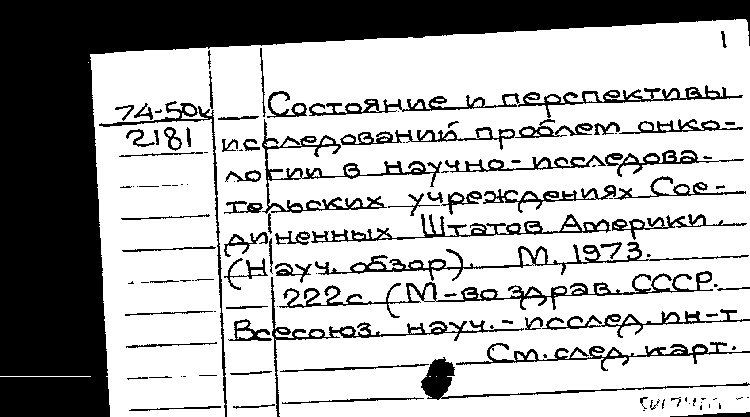 1
74-50к
2181
Состояние и перспективы
исследований проблем онко-
логии в научно-исследова-
тельских учреждениях Сое-
диненных Штатов Америки.
(Науч. обзор). М., 1973.
222с. (М-во здрав. СССР.
Всесоюз. науч.-исслед. ин-т
См. след. карт.